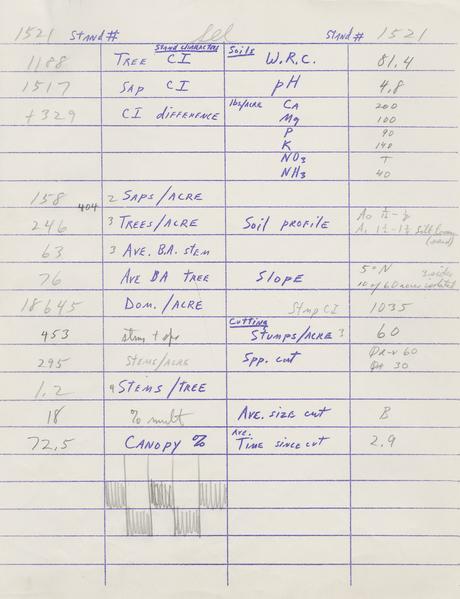 1521 Stand # Sel Stand # 1521
Stand Characters Soils
1188 Tree CI W.R.C. 81.4
1517 Sap CI pH 4.8
+329 CI difference lbs/acre Ca 200
Mg 100
P 90
K 140
NO3 T
NH3 40
158 2 Saps/acre
404
246 3 Trees/acre Soil profile A0 
A1 Silt loam
(sand)
63 3 Ave. B.A. stem
76 Ave BA tree Slope 5° N 3 sides
10 of 60 acre isolated
18645 Dom./acre Stmp CI 1035
Cutting
453 stems + Stumps/acre 3 60
295 Stems/acre Spp. cut 60
30
1.2 4 Stems/tree
18 % mult Ave. size cut B
72.5 Canopy % Ave. Time since cut 2.9